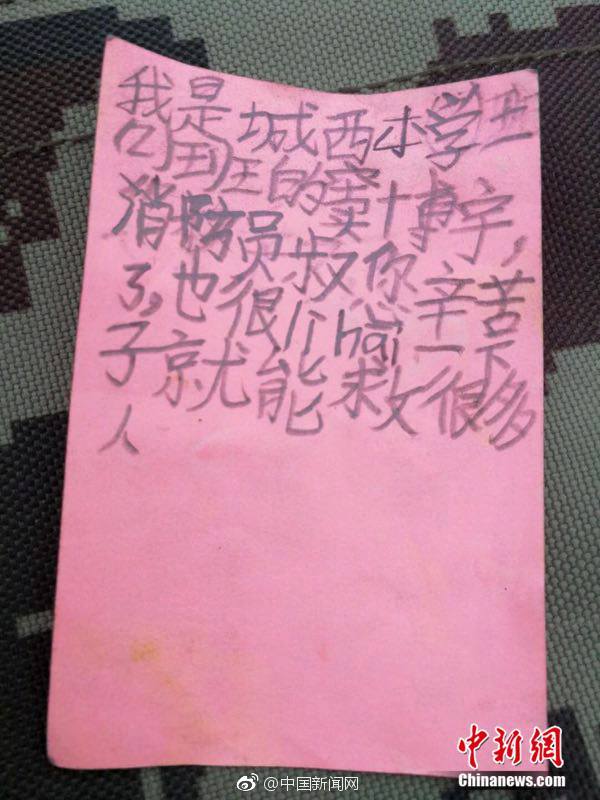 我是城西小学
班的窦博宇,
消防员叔叔你辛苦
了,也很历hai一下
子就能救很多
人
中新网
Chinanews.com
@中国新闻网